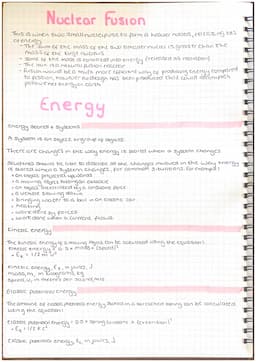 Nuclear Fusion
This is when two small nuclei fuse to form a heavier nucleus, releasing lots
of energy
- The sum of the mass of the two smaller nuclei is greater than the
mass of the final nucleus
- Some of the mass is converted into energy (released as radiation)
- The sun is a natural fusion reactor
- Fusion would be a much more efficient way of producing energy compared
to fission, however no design has been produced that could
produce net energy on earth
Energy
Energy stores + systems
A system is an object or group of objects.
There are changes in the way energy is stored when a system changes.
Students should be able to describe all the changes involved in the way energy
is stored when a system changes, for common situations. For example:
• an object projected upwards
• a moving object hitting an obstacle
• an object accelerated by a constant force
• a vehicle slowing down
• bringing water to a boil in an electric
• heating
• work done by forces
• work done when a current flows
Kinetic energy
The kinetic energy of a moving object can be calculated using the equation:
Kinetic energy = 0.5 × mass × (speed)²
• Eₖ = 1/2 m v²
Kinetic energy, Eₖ, in joules, J
mass, m, in kilograms, kg
speed, v, in metres per second, m/s
Elastic potential energy
The amount of elastic potential energy stored in a stretched spring can be calculated
using the equation:
Elastic potential energy = 0.5 × spring constant × (extension)²
• Eₑ = 1/2 k e²
Elastic potential energy, Eₑ, in joules, J